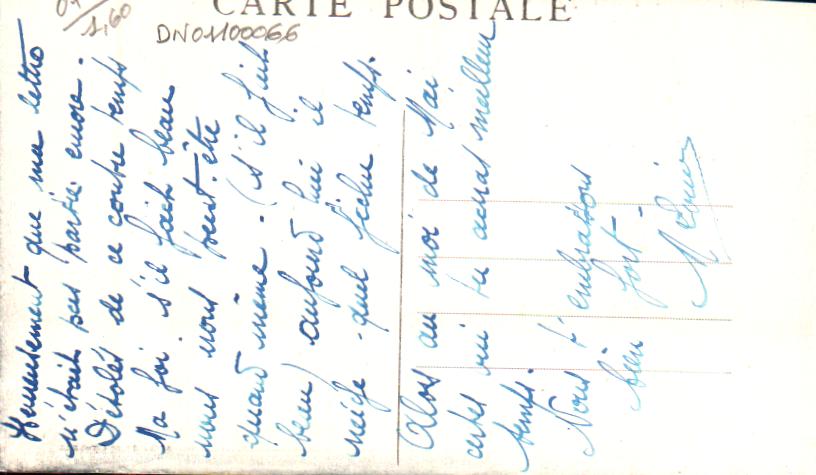 CARTE POSTALE
1,60
DN01100066
Heureusement que ma lettre
n'était pas partie encore.
Désolés de ce contre temps
Ma foi s'il fait beau
nous nous peut-être
quand même. (s'il fait
beau) aujourd'hui il
neige - quel fichu temps.
Alors au moi de Mai
certes ici tu auras meilleur
temps.
Nous t'embrassons
bien fort -